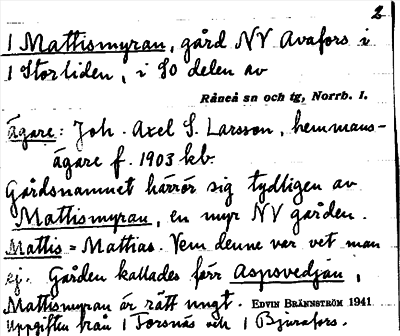 2
1 Mattismyran, gård NV Avafors i
1 Storliden, i SO delen av
Råneå sn och tg, Norrb. l.
Ägare: Joh. Axel S. Larsson, hemmans-
ägare f. 1903 kb.
Gårdsnamnet härrör sig tydligen av
Mattismyran, en myr NV gården.
Mattis = Mattias. Vem denne var vet man
ej. Gården kallades förr Aspsvedjan,
Mattismyran är rätt ungt. EDVIN BRÄNNSTRÖM 1941
Uppgifter från 1 Forsnäs och 1 Bjuråfors.